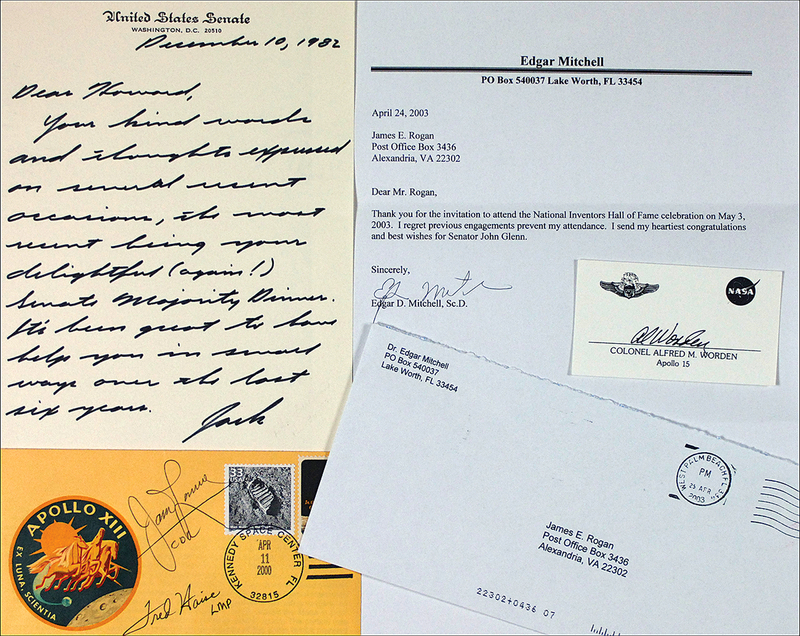 United States Senate
WASHINGTON, D.C. 20510
December 10, 1982
Dear Howard,
Your kind words
and thoughts expressed
on several recent
occasions, the most
recent being your
delightful (again!)
Senate Majority Dinner.
It's been great to have
help you in small
ways over the last
six years.
Jack
Edgar Mitchell
PO Box 540037 Lake Worth, FL 33454
April 24, 2003
James E. Rogan
Post Office Box 3436
Alexandria, VA 22302
Dear Mr. Rogan,
Thank you for the invitation to attend the National Inventors Hall of Fame celebration on May 3,
2003. I regret previous engagements prevent my attendance. I send my heartiest congratulations
and best wishes for Senator John Glenn.
Sincerely,
Edgar D. Mitchell, Sc.D.
NASA
Al Worden
COLONEL ALFRED M. WORDEN
Apollo 15
Dr. Edgar Mitchell
PO Box 540037
Lake Worth, FL 33454
WEST PALM BEACH FL 334
PM
25 APR
2003
James E. Rogan
Post Office Box 3436
Alexandria, VA 22302
22302+0436 07
APOLLO XIII
EX LUNA, SCIENTIA
Jim Lovell
CDR
Fred Haise
LMP
33
USA
KENNEDY SPACE CENTER FL
APR
11
2000
32815